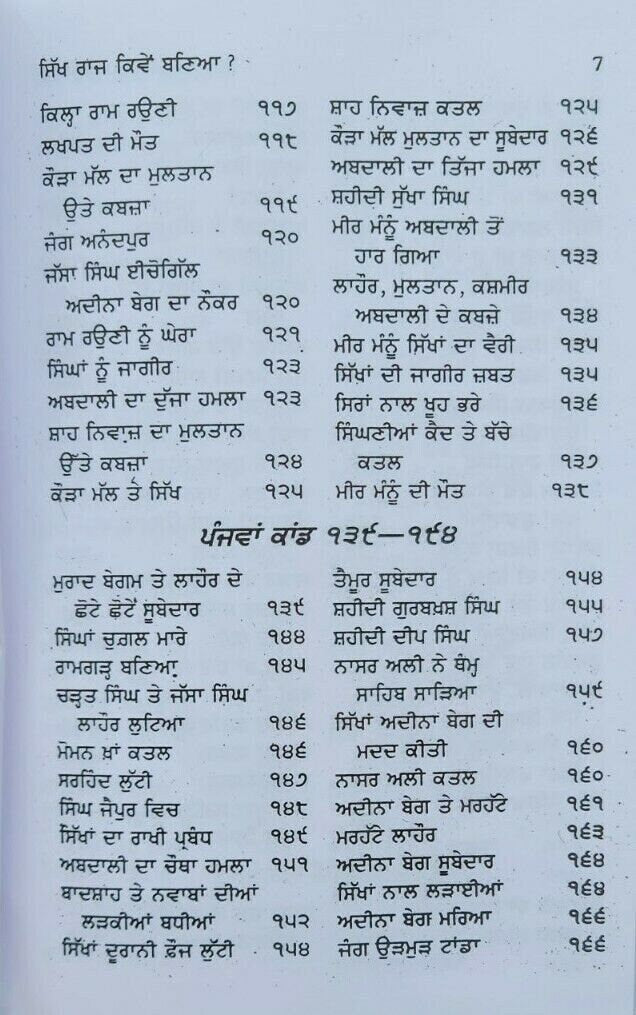 ਸਿੱਖ ਰਾਜ ਕਿਵੇਂ ਬਣਿਆ ?
7
ਕਿਲ੍ਹਾ ਰਾਮ ਰਉਣੀ ੧੧੭
ਲਖਪਤ ਦੀ ਮੌਤ ੧੧੮
ਕੌੜਾ ਮੱਲ ਦਾ ਮੁਲਤਾਨ
ਉਤੇ ਕਬਜ਼ਾ ੧੧੯
ਜੰਗ ਅਨੰਦਪੁਰ ੧੨੦
ਜੱਸਾ ਸਿੰਘ ਈਚੋਗਿੱਲ
ਅਦੀਨਾ ਬੇਗ ਦਾ ਨੌਕਰ ੧੨੦
ਰਾਮ ਰਉਣੀ ਨੂੰ ਘੇਰਾ ੧੨੧
ਸਿੰਘਾਂ ਨੂੰ ਜਾਗੀਰ ੧੨੩
ਅਬਦਾਲੀ ਦਾ ਦੁੱਜਾ ਹਮਲਾ ੧੨੩
ਸ਼ਾਹ ਨਿਵਾਜ਼ ਦਾ ਮੁਲਤਾਨ
ਉੱਤੇ ਕਬਜ਼ਾ ੧੨੪
ਕੌੜਾ ਮੱਲ ਤੇ ਸਿੱਖ ੧੨੫
ਸ਼ਾਹ ਨਿਵਾਜ਼ ਕਤਲ ੧੨੫
ਕੌੜਾ ਮੱਲ ਮੁਲਤਾਨ ਦਾ ਸੂਬੇਦਾਰ ੧੨੬
ਅਬਦਾਲੀ ਦਾ ਤਿੱਜਾ ਹਮਲਾ ੧੨੯
ਸ਼ਹੀਦੀ ਸੁੱਖਾ ਸਿੰਘ ੧੩੧
ਮੀਰ ਮੰਨੂੰ ਅਬਦਾਲੀ ਤੋਂ
ਹਾਰ ਗਿਆ ੧੩੩
ਲਾਹੌਰ, ਮੁਲਤਾਨ, ਕਸ਼ਮੀਰ
ਅਬਦਾਲੀ ਦੇ ਕਬਜ਼ੇ ੧੩੪
ਮੀਰ ਮੰਨੂੰ ਸਿੱਖਾਂ ਦਾ ਵੈਰੀ ੧੩੫
ਸਿੱਖਾਂ ਦੀ ਜਾਗੀਰ ਜ਼ਬਤ ੧੩੫
ਸਿਰਾਂ ਨਾਲ ਖੂਹ ਭਰੇ ੧੩੬
ਸਿੰਘਣੀਆਂ ਕੈਦ ਤੇ ਬੱਚੇ
ਕਤਲ ੧੩੭
ਮੀਰ ਮੰਨੂੰ ਦੀ ਮੌਤ ੧੩੮
ਪੰਜਵਾਂ ਕਾਂਡ ੧੩੯—੧੯੪
ਮੁਰਾਦ ਬੇਗਮ ਤੇ ਲਾਹੌਰ ਦੇ
ਛੋਟੇ ਛੋਟੇਂ ਸੂਬੇਦਾਰ ੧੩੯
ਸਿੰਘਾਂ ਚੁਗ਼ਲ ਮਾਰੇ ੧੪੪
ਰਾਮਗੜ੍ਹ ਬਣਿਆ ੧੪੫
ਚੜ੍ਹਤ ਸਿੰਘ ਤੇ ਜੱਸਾ ਸਿੰਘ
ਲਾਹੌਰ ਲੁਟਿਆ ੧੪੬
ਮੋਮਨ ਖ਼ਾਂ ਕਤਲ ੧੪੬
ਸਰਹਿੰਦ ਲੁੱਟੀ ੧੪੭
ਸਿੰਘ ਜੈਪੁਰ ਵਿਚ ੧੪੮
ਸਿੱਖਾਂ ਦਾ ਰਾਖੀ ਪ੍ਰਬੰਧ ੧੪੯
ਅਬਦਾਲੀ ਦਾ ਚੌਥਾ ਹਮਲਾ ੧੫੧
ਬਾਦਸ਼ਾਹ ਤੇ ਨਵਾਬਾਂ ਦੀਆਂ
ਲੜਕੀਆਂ ਬਧੀਆਂ ੧੫੨
ਸਿੱਖਾਂ ਦੂਰਾਨੀ ਫ਼ੌਜ ਲੁੱਟੀ ੧੫੪
ਤੈਮੂਰ ਸੂਬੇਦਾਰ ੧੫੪
ਸ਼ਹੀਦੀ ਗੁਰਬਖ਼ਸ਼ ਸਿੰਘ ੧੫੫
ਸ਼ਹੀਦੀ ਦੀਪ ਸਿੰਘ ੧੫੭
ਨਾਸਰ ਅਲੀ ਨੇ ਥੰਮ੍ਹ
ਸਾਹਿਬ ਸਾੜਿਆ ੧੫੯
ਸਿੱਖਾਂ ਅਦੀਨਾਂ ਬੇਗ ਦੀ
ਮਦਦ ਕੀਤੀ ੧੬੦
ਨਾਸਰ ਅਲੀ ਕਤਲ ੧੬੦
ਅਦੀਨਾ ਬੇਗ ਤੇ ਮਰਹੱਟੇ ੧੬੧
ਮਰਹੱਟੇ ਲਾਹੌਰ ੧੬੩
ਅਦੀਨਾ ਬੇਗ ਸੂਬੇਦਾਰ ੧੬੪
ਸਿੱਖਾਂ ਨਾਲ ਲੜਾਈਆਂ ੧੬੪
ਅਦੀਨਾ ਬੇਗ ਮਰਿਆ ੧੬੬
ਜੰਗ ਉੜਮੁੜ ਟਾਂਡਾ ੧੬੬